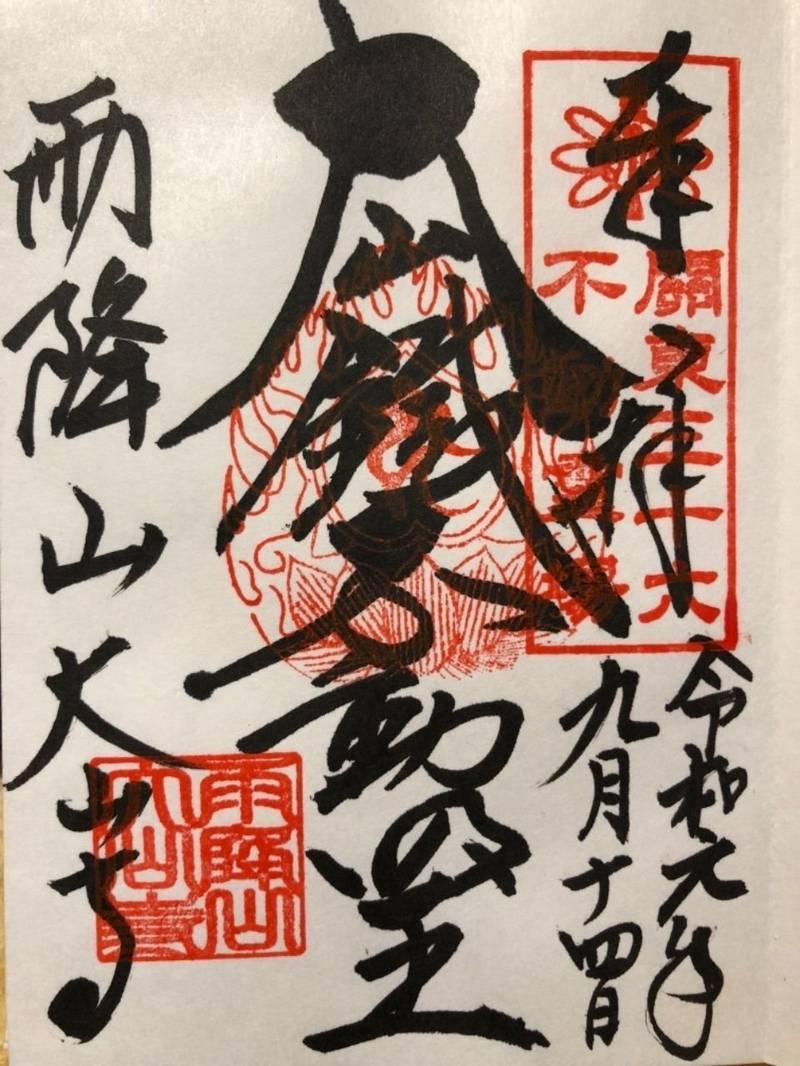 奉拝
關東三十六
不動霊場
令和元年
九月十四日
大山
鐵不動明王
雨降山大山寺
雨降山
大山寺